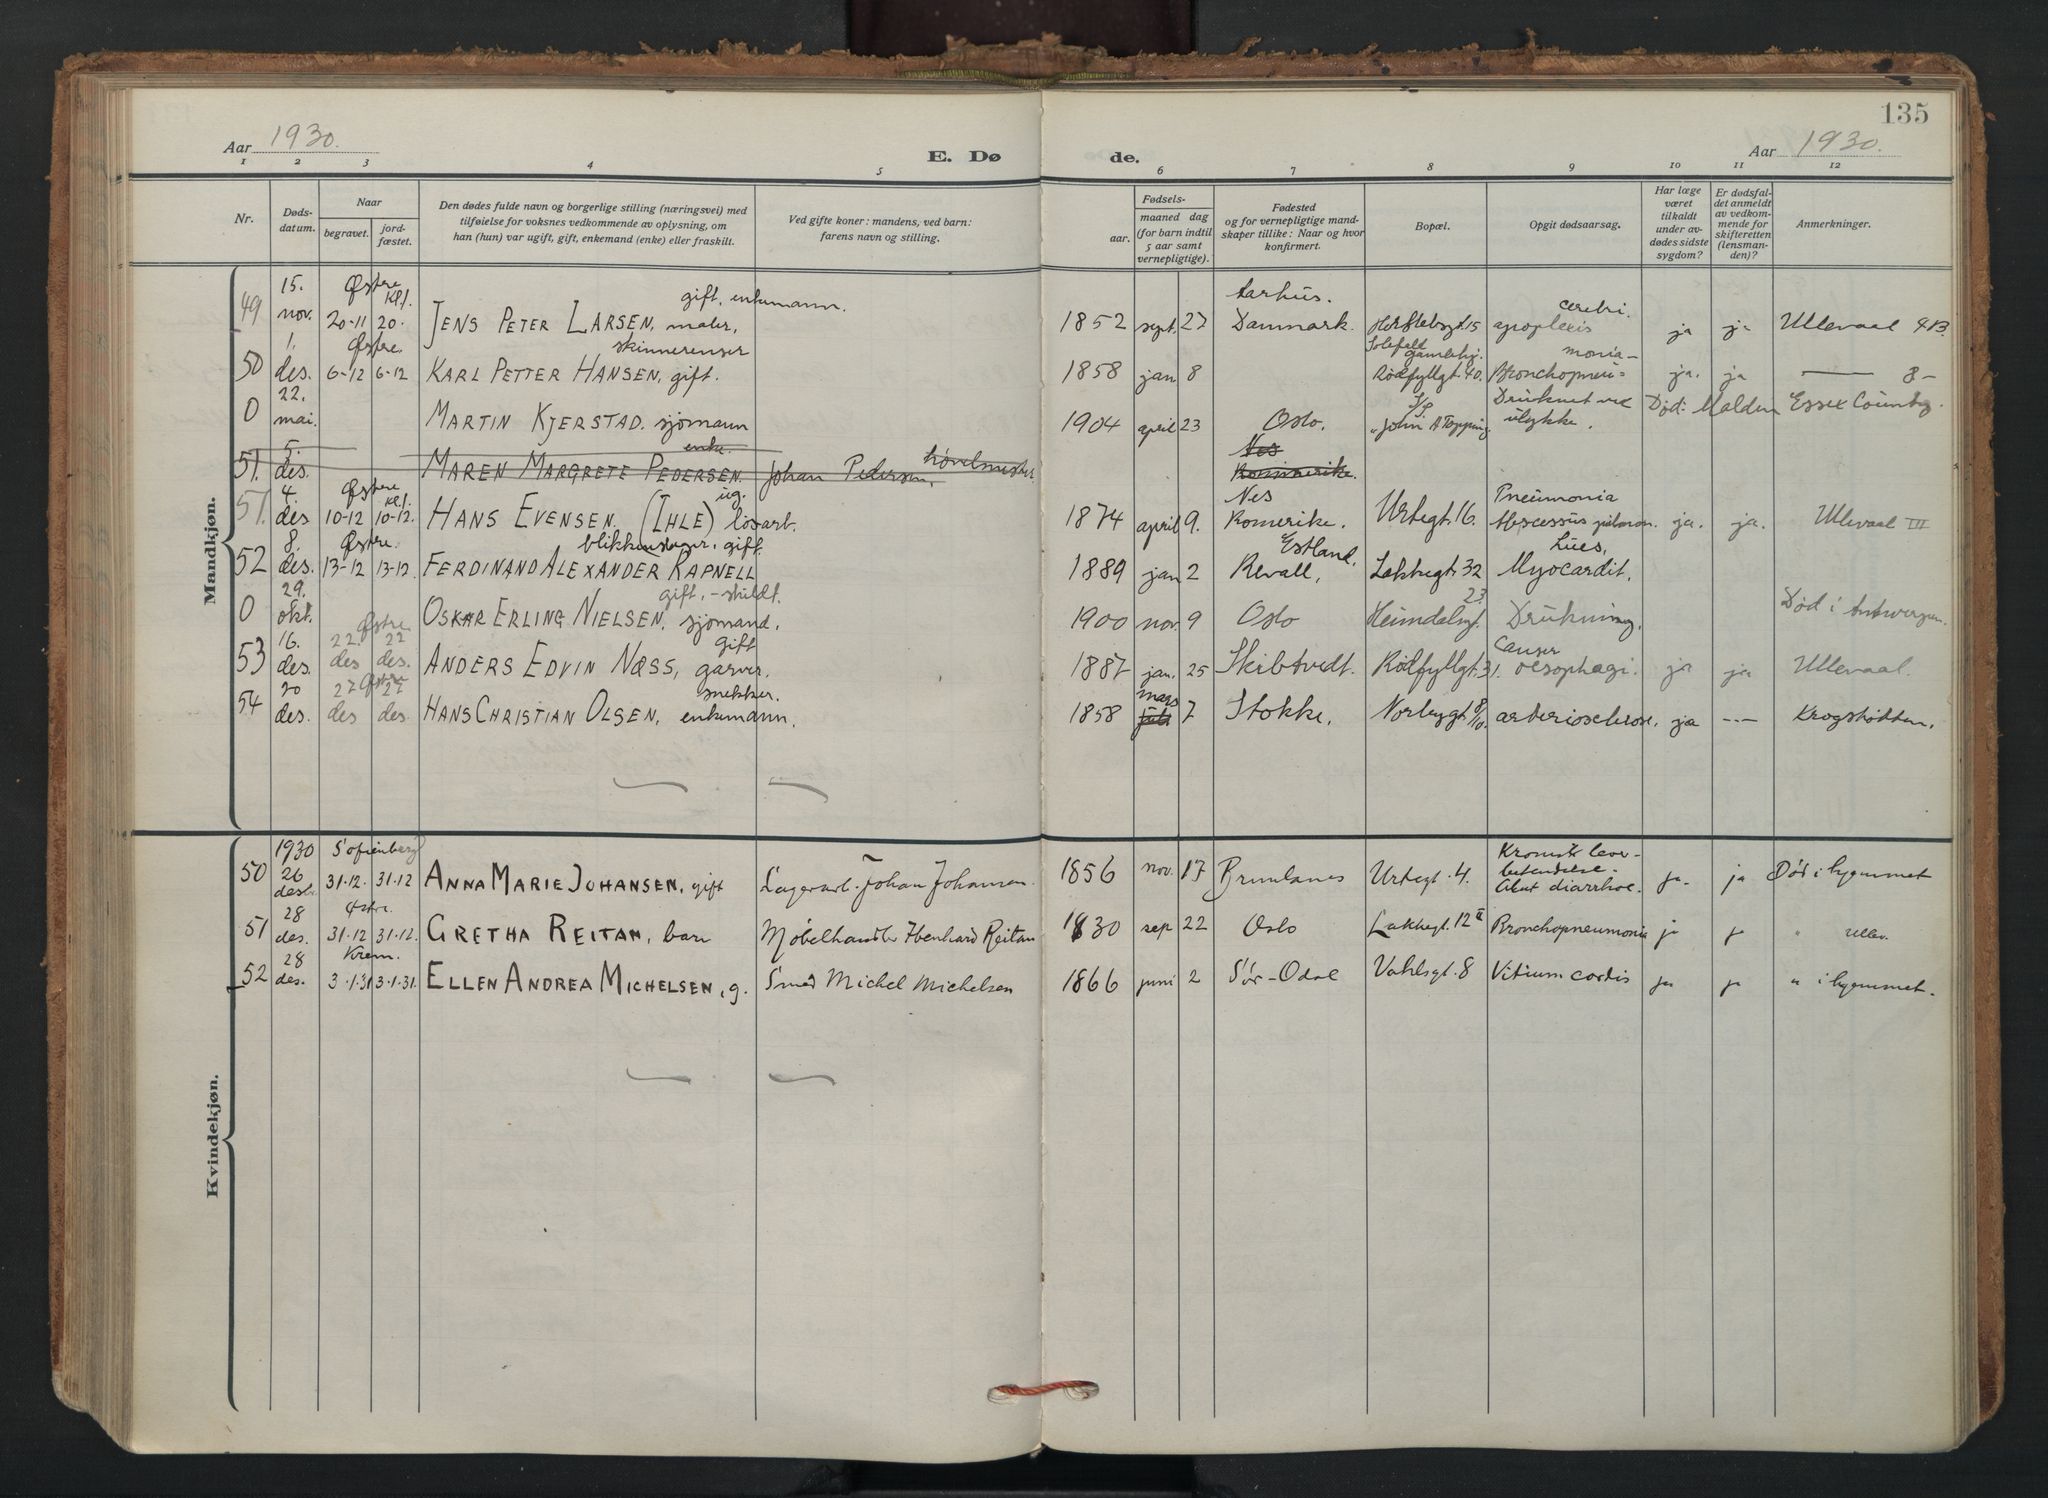 135
Aar 1930. E. Dø de. Aar 1930.
1 2 3 4 5 6 7 8 9 10 11 12
Nr. Døds-datum. Naar begravet. jord-fæstet. Den dødes fulde navn og borgerlige stilling (næringsvei) med tilføielse for voksnes vedkommende av oplysning, om han (hun) var ugift, gift, enkemand (enke) eller fraskilt. Ved gifte koner: mandens, ved barn: farens navn og stilling. Fødsels- aar. maaned dag (for barn indtil 5 aar samt vernepligtige). Fødested og for vernepligtige mand-skaper tillike: Naar og hvor konfirmert. Bopæl. Opgit dødsaarsag. Har læge været tilkaldt under av-dødes sidste sygdom? Er dødsfal-det anmeldt av vedkom-mende for skifteretten (lensman-den)? Anmerkninger.
Mandkjøn.
49 15. nov. Østre Kpl. 20-11 20. JENS PETER LARSEN, maler, gift, enkemann. 1852 sept. 27 Aarhus. Danmark. 15 cerebri. apoplexis ja ja Ullevaal
50 1. des. Østre. 6-12 6-12 KARL PETTER HANSEN, gift. skinnerenser 1858 jan 8 gamlehj. Rødfyllgt. 40. Bronchopneu-monia ja. ja — 8-
0 22. mai. MARTIN KJERSTAD. sjømann 1904 april 23 Oslo. "John A Topping Druknet ved ulykke. Død: Malden Essex County.
51. 5. des. MAREN MARGRETE PEDERSEN. enke. Johan Pedersen, høvelmester. Nes Romerike.
51. 4. des Østre Kpl. 10-12 10-12. HANS EVENSEN (IHLE) ug. løsarb. 1874 april 9. Nes Romerike. Urtegt. 16. Pneumonia Abscessus pulmon. ja. ja. Ullevaal III
52 8. des. Østre. 13-12 13-12 FERDINAND ALEXANDER KAPNELL blikkenslager, gift. 1889 jan 2 Estland. Revall, Lakkegt. 32 Lues, Myocardit.
0 29. okt. OSKAR ERLING NIELSEN, sjømand, gift, -skildt. 1900 nov. 9 Oslo Heimdalsgt. 23. Drukning. Død i Antwerpen.
53 16. des. Østre 22. des 22 des. ANDERS EDVIN NÆSS, garver. gift 1887 jan. 25 Skibtvedt. Rødfyllgt. 31. Cancer oesophagi. ja ja Ullevaal.
54 20 des. Østre 27 des 27 des. HANS CHRISTIAN OLSEN, enkemann. snekker. 1858 mars juli 7 Stokke. Norbygt 8/10. arteriosclerose. ja --- Krogstøtten.
Kvindekjøn.
50 1930 26 desb. Sofienberg 31.12. 31.12 ANNA MARIE JOHANSEN, gift Lagerarb. Johan Johansen 1856 nov. 17 Brunlanes Urtegt. 4. Kronisk lever-betendelse. Akut diarrhoe. ja. ja Død i hjemmet
51 28 des. Østre. 31.12 31.12. GRETHA REITAN, barn Møbelhandler Reitan 1930 sep 22 Oslo Lakkegt. 12 II Bronchopneumonia ja ja " Ullev.
52 28 des. Krem. 3.1.31 3.1.31. ELLEN ANDREA MICHELSEN, g. Smed Michel Michelsen 1866 juni 2 Sør-Odal Vahlsgt. 8 Vitium cordis ja ja " i hjemmet.